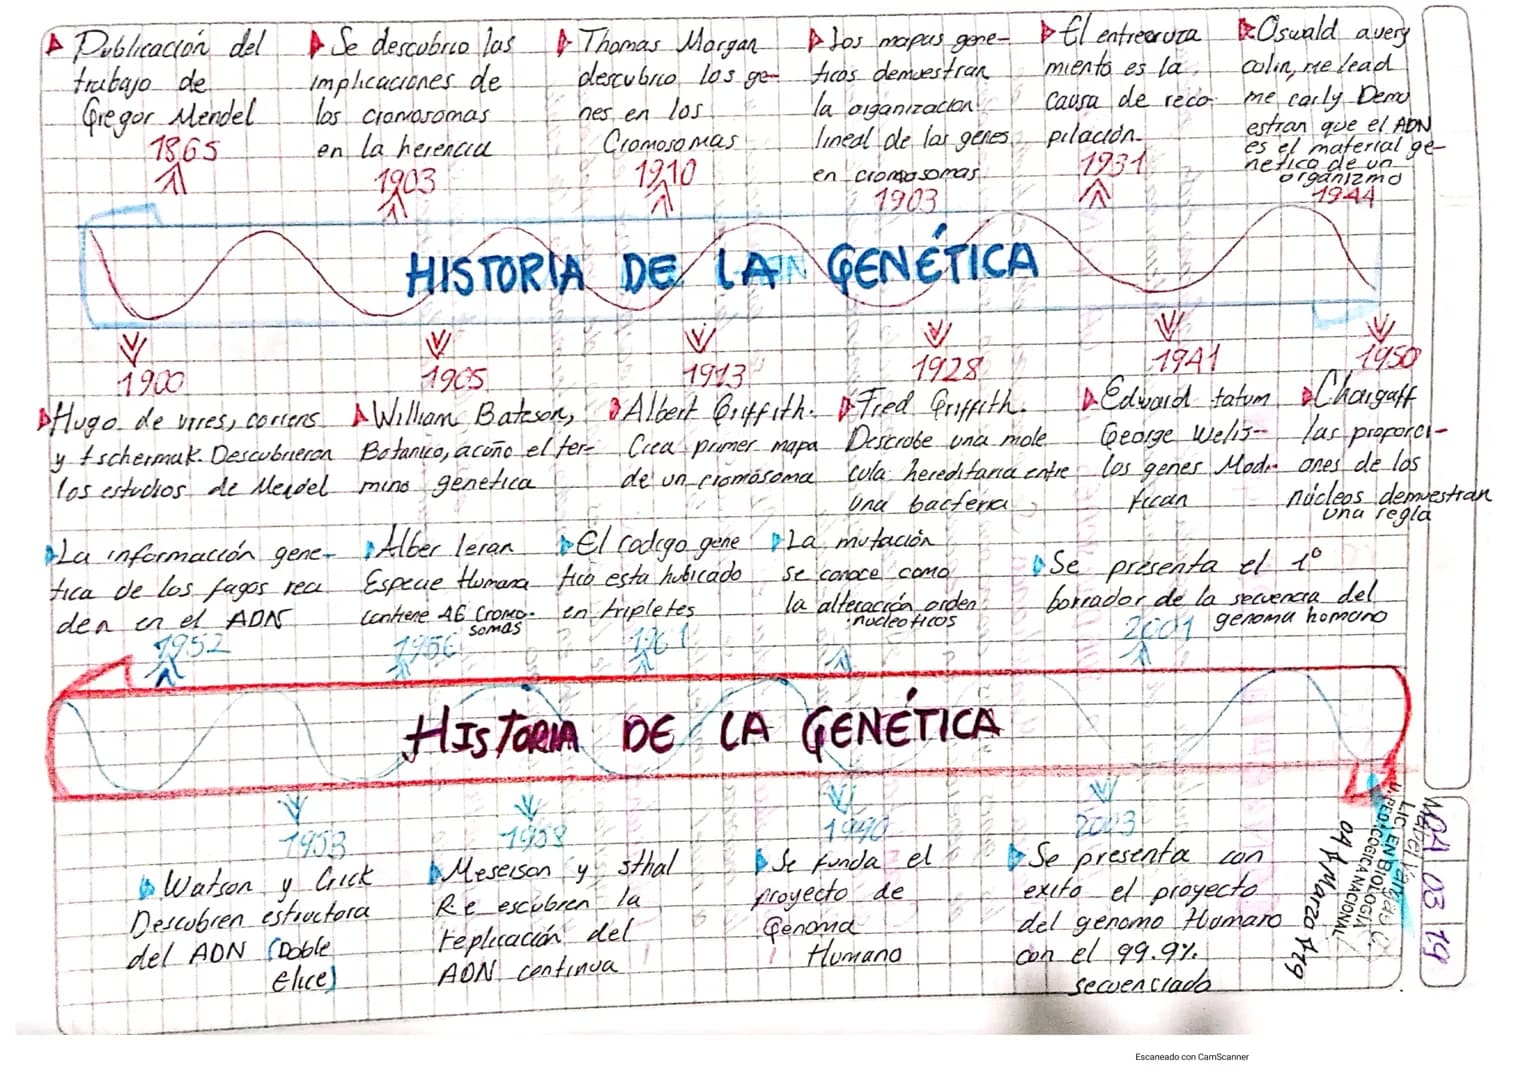 Publicación del
trabajo de
Gregor Mendel
1865
Se descubrio las
implicaciones de
los cromosomas
en la herencia
1903
Thomas Morgan
descubrio los ge-
nes en los
Cromosomas
1910
Los mapas gene-
ticos demuestran
la organizacion
lineal de las genes
en cromosomas
1903
El entrecruza
miento es la
causa de reco-
pilación
1931
Oswald avery
colin, me lead
me carly Demu
estran que el ADN
es el material ge-
netico de un
organizmo
1944
HISTORIA DE LA GENÉTICA
1900
Hugo de vries, correns
y tschermak. Descubrieron
los estudios de Mendel
1905
William Bateson,
Botanico, acuño el ter-
mino genetica
1913
Albert Griffith.
Crea primer mapa
de un cromosoma
1928
Fred Griffith.
Descrobe una mole
cula hereditaria entre
una bacteria
1941
Edward tatum
George Wells--
los genes Modi-
fican
1950
Chargaff
las proporci-
ones de los
núcleos demuestran
una regla
La información gene-
tica de los fagos reci
den en el ADN
1952
Alber leran
Especie Humana
contiene 46 Cromo-
somas
1956
El codigo gene
tico esta hubicado
en tripletes
1961
La mutación
se conoce como
la alteración orden
nucleoticos
Se presenta el 1°
borrador de la secuencia del
genoma homano
2001
HISTORIA DE LA GENÉTICA
1953
Watson y Crick
Descubren estructura
del ADN (Doble
elice)
1958
Meselson y sthal
Re escubren la
replicación del
ADN continua
1990
Se funda el
proyecto de
Genoma
Humano
2003
Se presenta con
exito el proyecto
del genomo Humano
con el 99.9%
secuenciado
LIC EN BIOLOGÍA
U. PEDAGOGICA NACIONAL
04 Marzo 19
03 19
Escaneado con CamScanner